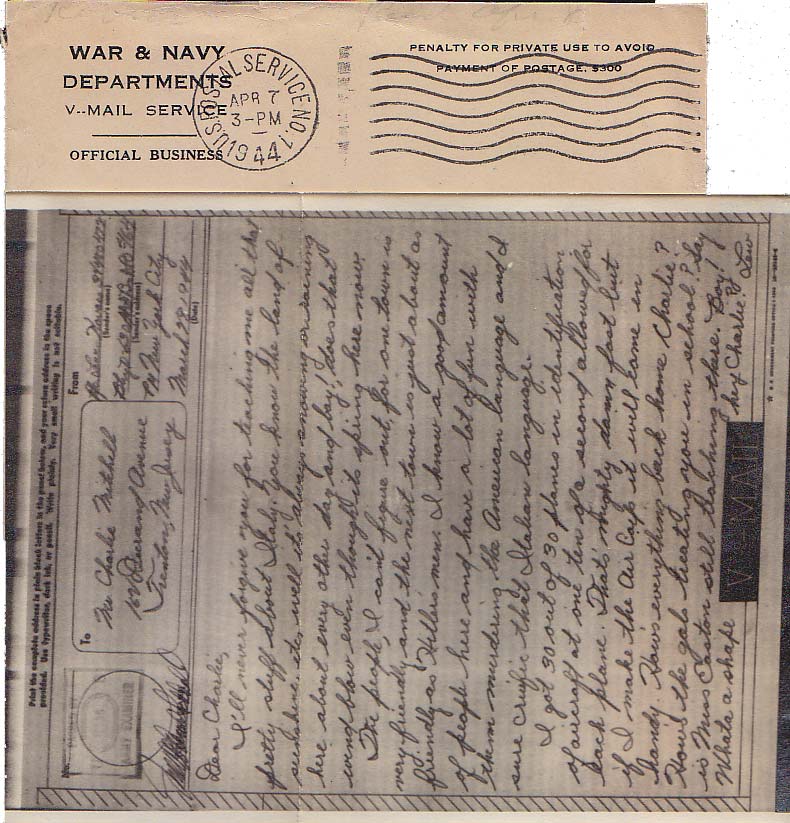 WAR & NAVY
DEPARTMENTS
V--MAIL SERVICE
OFFICIAL BUSINESS
U.S. POSTAL SERVICE NO. 1
APR 7
3-PM
1944
PENALTY FOR PRIVATE USE TO AVOID
PAYMENT OF POSTAGE, $300
Print the complete address in plain block letters in the panel below, and your return address in the space
provided. Use typewriter, dark ink, or pencil. Write plainly. Very small writing is not suitable.
No.
To
Mr Charlie Mitchell
Avenue
Trenton, New Jersey
From
(Sender's name)
(Sender's address)
New York City
March 29, 1944
(Date)
Dear Charlie,
I'll never forgive you for teaching me all that
pretty stuff about Italy, you know the land of
sunshine etc, well it's always snowing or raining
here about every other day and boy! does that
wind blow even though its spring here now.
The people, I can't figure out, for one town is
very friendly and the next town is just about as
friendly as Hitler's men. I know a good amount
of people here and have a lot of fun with
them murdering the American language and I
sure crucific that Italian language.
I got 30 out of 30 planes in identification
of aircraft at one ten of a second allowed for
each plane. That's mighty damn fast but
if I make the Air Corps it will come in
handy. Hows everything back home Charlie?
Hows the gals treating you in school? Say
is Miss Caston still teaching there. Boy!
Whata a shape
hey Charlie? Lew
V-MAIL